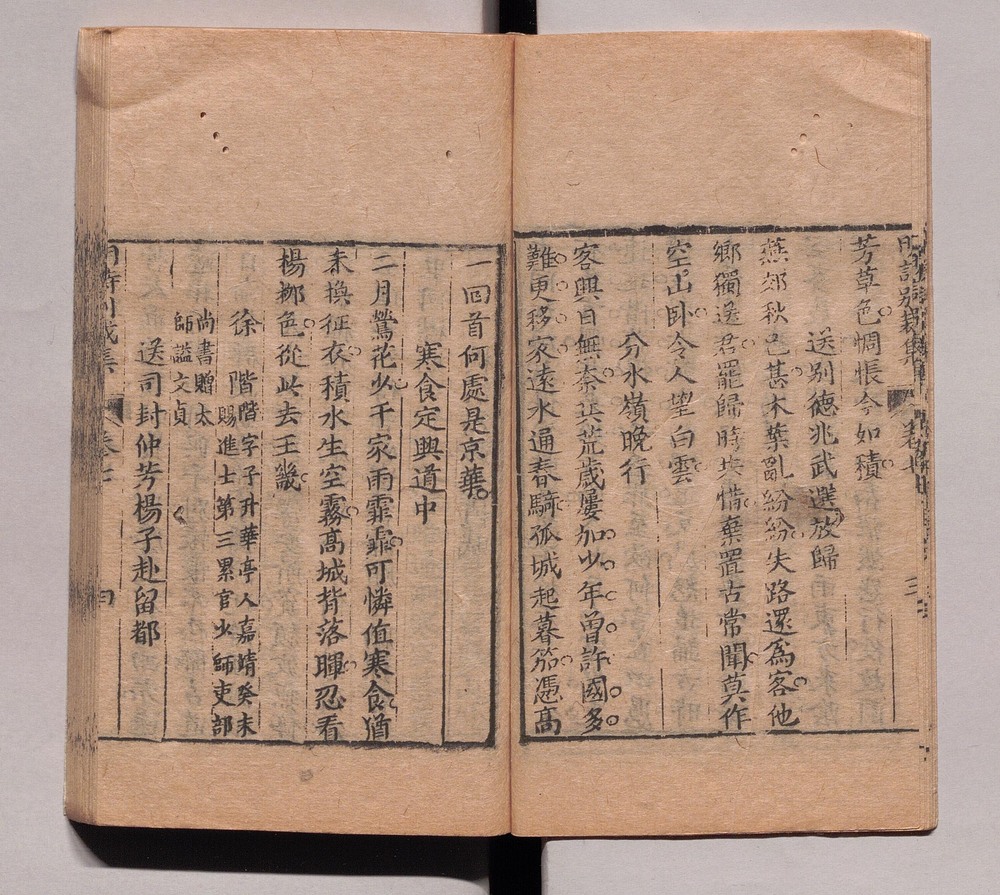 芳草色惆悵今如積
送别德兆武選放歸
燕郊秋已甚木葉亂紛紛失路還為客他
鄉獨送君罷歸時共惜棄置古常聞莫作
空山卧令人望白雲
分水嶺晚行
客興日無奈兵荒歲屢加少年曾許國多
難更移家遠水通春騎孤城起暮笳憑高
一回首何處是京華
寒食定興道中
二月鶯花少千家雨霏霏可憐值寒食猶
未換征衣積水生空霧高城背落暉忍看
楊栁色從此去王畿
徐階
階字子升華亭人嘉靖癸未
賜進士第三累官少師吏部
尚書贈太
師謚文貞
送司封仲芳楊子赴留都